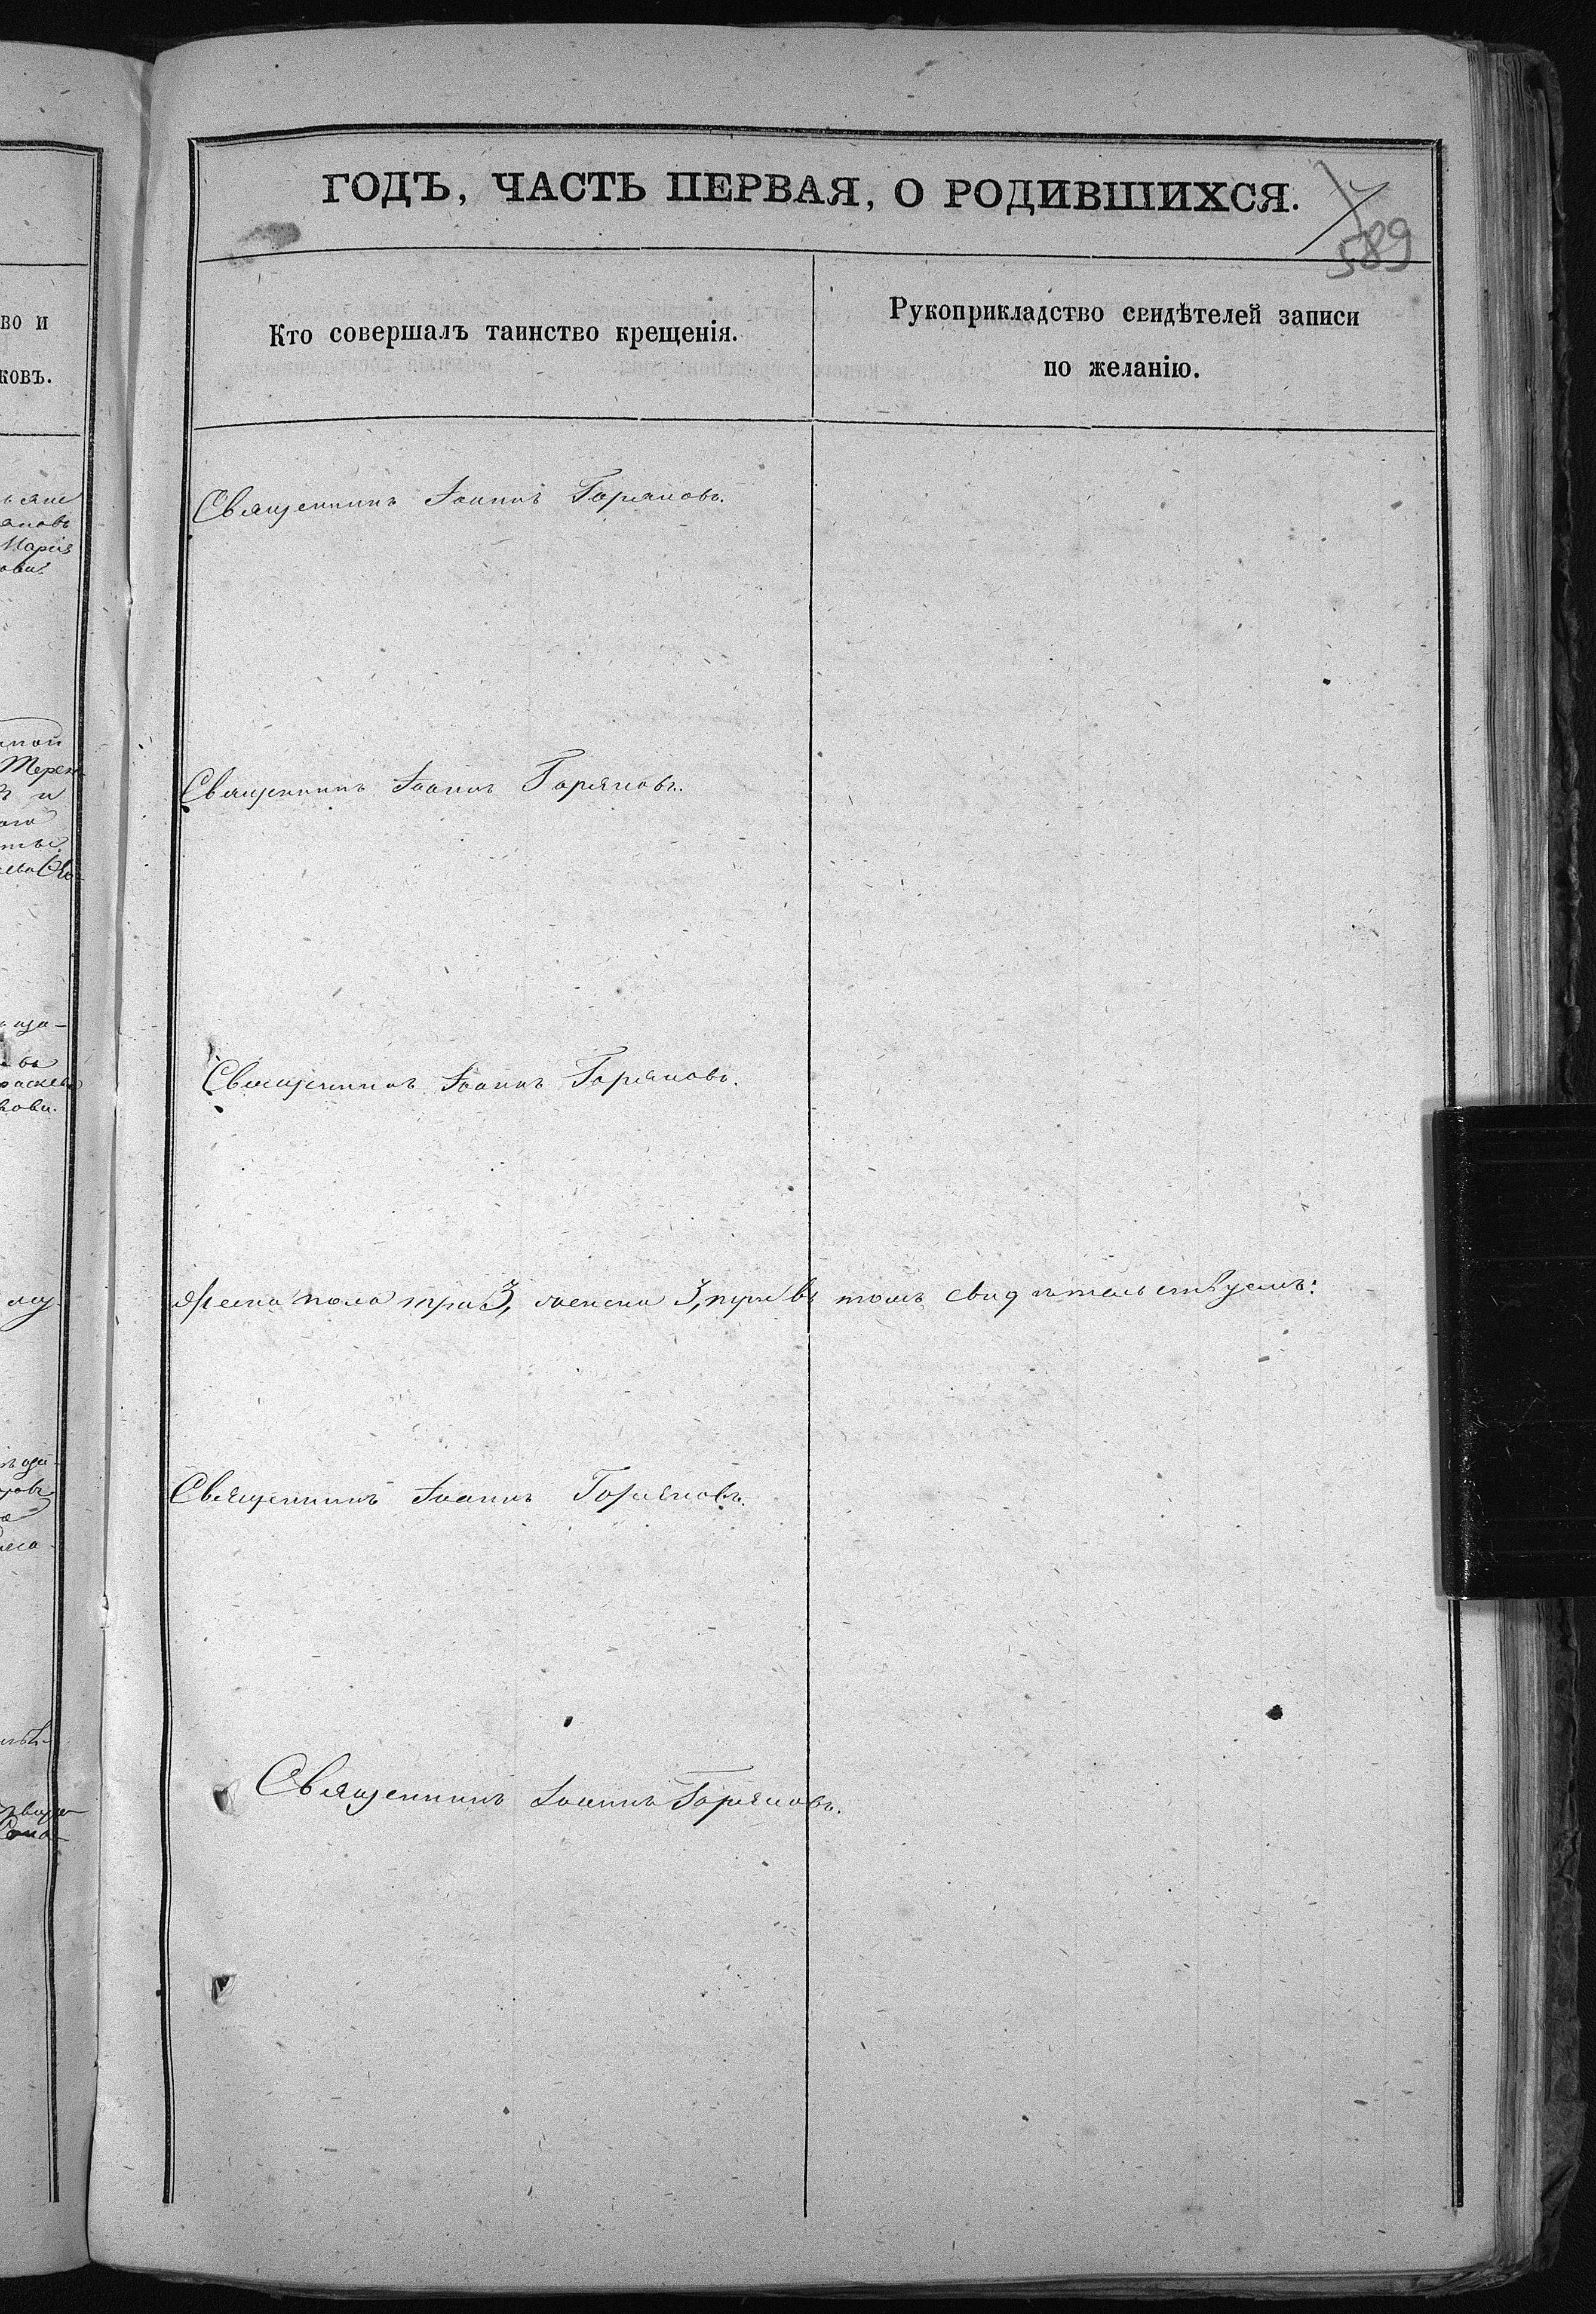 ГОДЪ, ЧАСТЬ ПЕРВАЯ, О РОДИВШИХСЯ.
589
Кто совершалъ таинство крещенія.
Рукоприкладство свидѣтелей записи
по желанію.
во и
ковъ.
Марія
Священникъ Іоаннъ Горяновъ.
Священникъ Іоаннъ Горяновъ.
Священникъ Іоаннъ Горяновъ.
пола три 3, женска 3, въ томъ свидѣтельствуемъ:
Священникъ Іоаннъ Горяновъ.
Священникъ Іоаннъ Горяновъ.